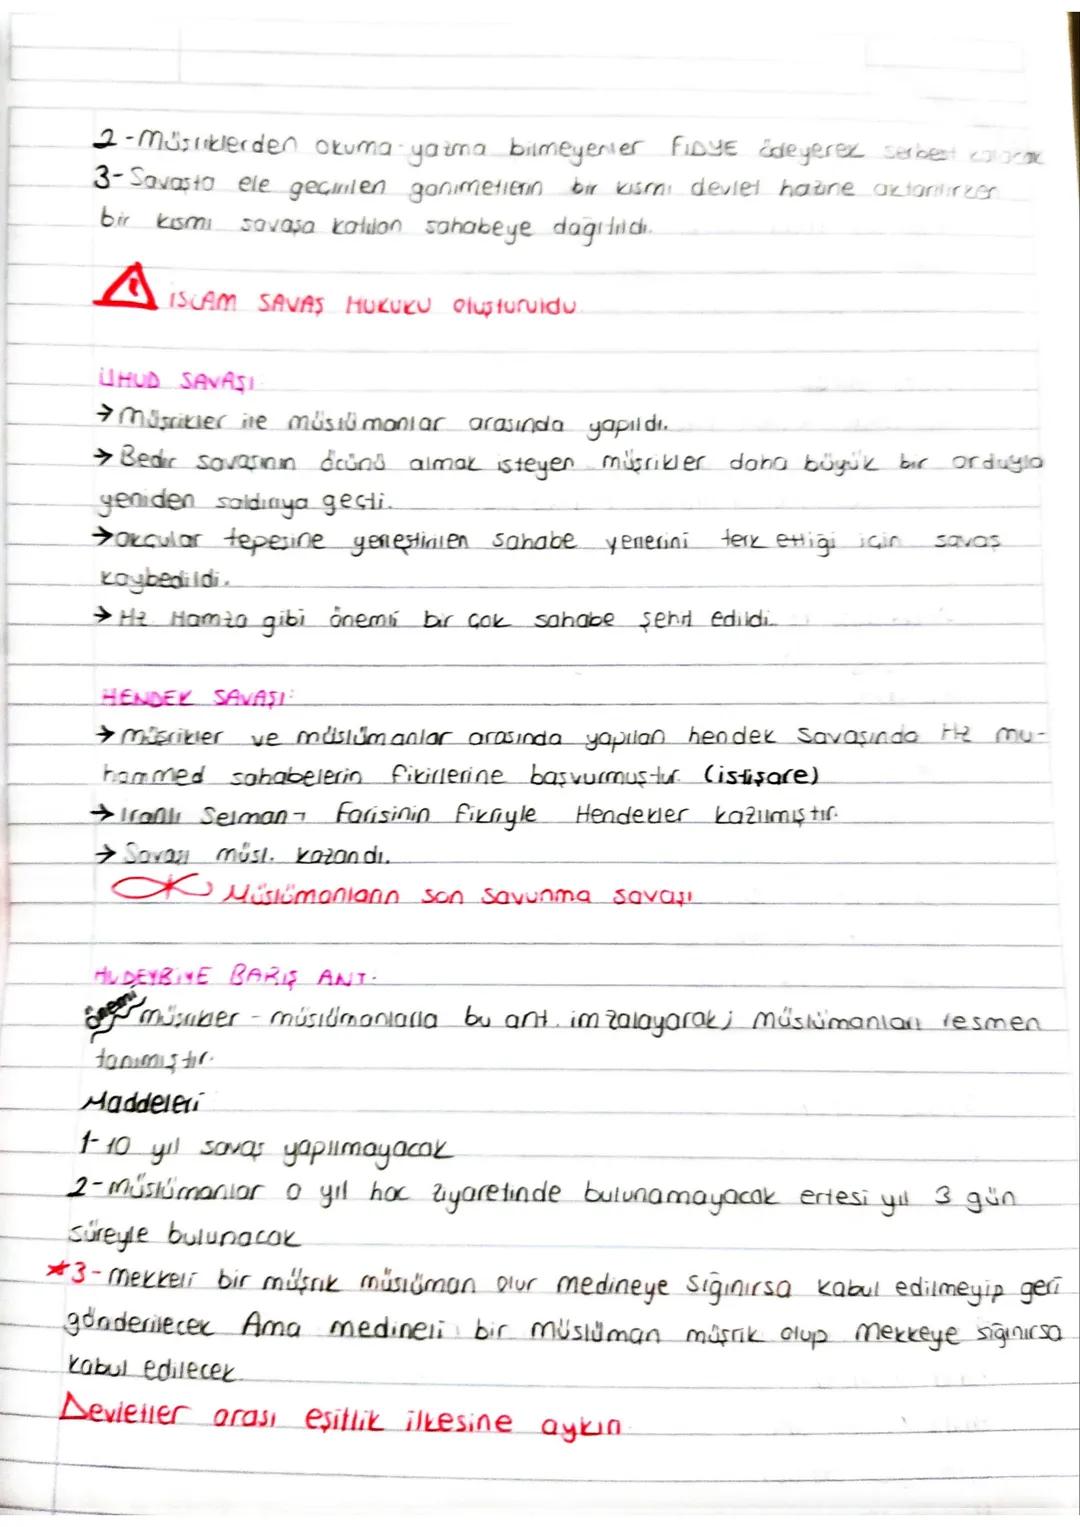 2-Müşriklerden okuma-yazma bilmeyenler FiDYE ödeyerek serbest kalacak
3-Savaşta ele geçirilen ganimetlerin bir kısmı devlet hazine aktarılırken
bir kısmı savaşa katılan sahabeye dağıtıldı.
İSLAM SAVAŞ HUKUKU oluşturuldu.
UHUD SAVAŞI
→ Müşrikler ile müslümanlar arasında yapıldı.
→ Bedir savaşının öcünü almak isteyen müşrikler daha büyük bir orduyla
yeniden saldırıya geçti.
→ okçular tepesine yerleştirilen sahabe yerlerini terk ettiği için savaş
kaybedildi.
→ Hz Hamza gibi önemli bir çok sahabe şehit edildi.
HENDEK SAVAŞI:
→ müşrikler ve müslümanlar arasında yapılan hendek Savaşında Hz mu-
hammed sahabelerin fikirlerine başvurmuştur. (istişare)
→ İranlı Selman-ı Farisinin fikriyle Hendekler kazılmıştır.
→ Savaşı müsl. kazandı.
Müslümanların son savunma savaşı
HUDEYBİYE BARIŞ ANT.
önemi müşrikler - müslümanlarla bu ant. imzalayarak; müslümanları resmen
tanımıştır.
Maddeleri
1-10 yıl savaş yapılmayacak
2-müslümanlar o yıl hac ziyaretinde bulunamayacak ertesi yıl 3 gün
süreyle bulunacak
*3-Mekkeli bir müşrik müslüman olur medineye sığınırsa kabul edilmeyip geri
gönderilecek Ama medineli bir müslüman müşrik olup Mekkeye sığınırsa
kabul edilecek.
Devletler arası eşitlik ilkesine aykırı